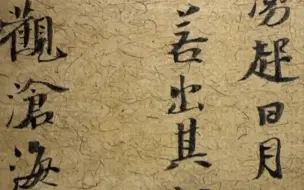 起日月
若出其
觀滄海